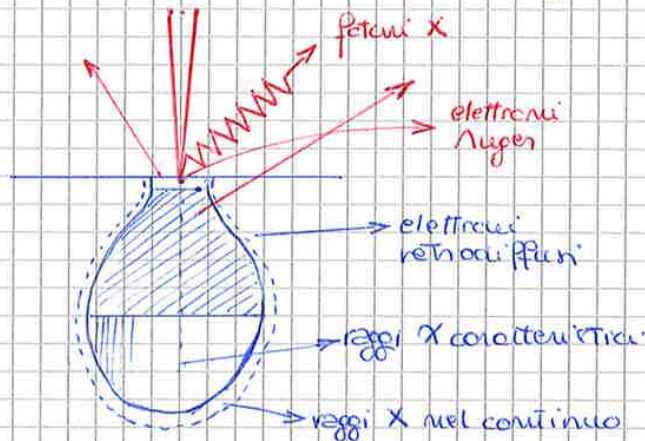 fotoni X
elettroni
Auger
elettroni
retrodiffusi
raggi X caratteristici
raggi X nel continuo